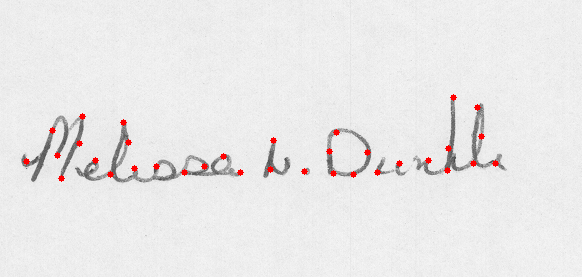 Melissa Dunkle